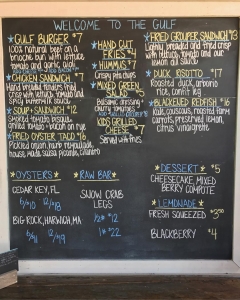 WELCOME TO THE GULF
GULF BURGER $7
100% natural beef on a
brioche bun with lettuce
tomato and garlic aioli
CHICKEN SANDWICH $7
Hand breaded tenders
fried crisp with lettuce, tomato and
spicy buttermilk sauce
SOUP + SANDWICH $12
Smoked tomato bisque
grilled tomato + bacon on rye
FRIED OYSTER TACO $16
Pickled onion, ham remoulade
house made salsa picante, cilantro
HAND CUT
FRIES $4
HUMMUS $7
Crispy pita chips
MIXED GREEN
SALAD $5
Balsamic dressing
KID'S GRILLED
CHEESE $7
Served with fries
FRIED GROUPER SANDWICH $13
Lightly breaded and fried crisp
with lettuce, tomato and our
lemon dill sauce
DUCK RISOTTO $17
Roasted duck, arborio
rice, confit leg
BLACKENED REDFISH $16
Kale, couscous, roasted farm
carrots, preserved lemon,
citrus vinaigrette
OYSTERS
CEDAR KEY, FL
6/$10 12/$18
BIG ROCK, HARWICH, MA
6/$11 12/$19
RAW BAR
SNOW CRAB
LEGS
1/2# $12
1# $22
DESSERT $5
CHEESECAKE, MIXED
BERRY COMPOTE
LEMONADE
FRESH SQUEEZED $3.00
BLACKBERRY $4